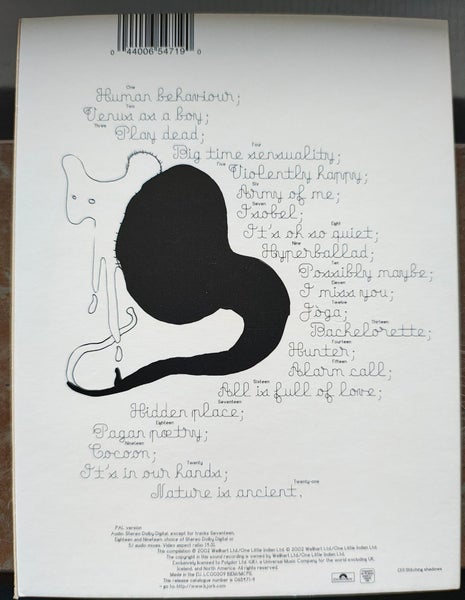 0 44006 54719 0
One
Human behaviour;
Two
Venus as a boy;
Three
Play dead;
Four
Big time sensuality;
Five
Violently happy;
Six
Army of me;
Seven
Isobel;
Eight
It's oh so quiet;
Nine
Hyperballad;
Ten
Possibly maybe;
Eleven
I miss you;
Twelve
Jòga;
Thirteen
Bachelorette;
Fourteen
Hunter;
Fifteen
Alarm call;
Sixteen
All is full of love;
Seventeen
Hidden place;
Eighteen
Pagan poetry;
Nineteen
Cocoon;
Twenty
It's in our hands;
Twenty-one
Nature is ancient.
PAL version
Audio: Stereo Dolby Digital, except for tracks Seventeen,
Eighteen and Nineteen: choice of Stereo Dolby Digital or
5.1 audio mixes. Video aspect ratio (4:3).
The compilation © 2002 Wellhart Ltd/One Little Indian Ltd
The copyright in this sound recording is owned by Wellhart Ltd/One Little Indian Ltd.
Exclusively licensed to Polydor Ltd (UK), a Universal Music Company for the world excluding UK,
Iceland, and North America. All rights reserved.
Made in the EU.
The release catalogue number is
- go to http://www.bjork.com
Stitching shadows